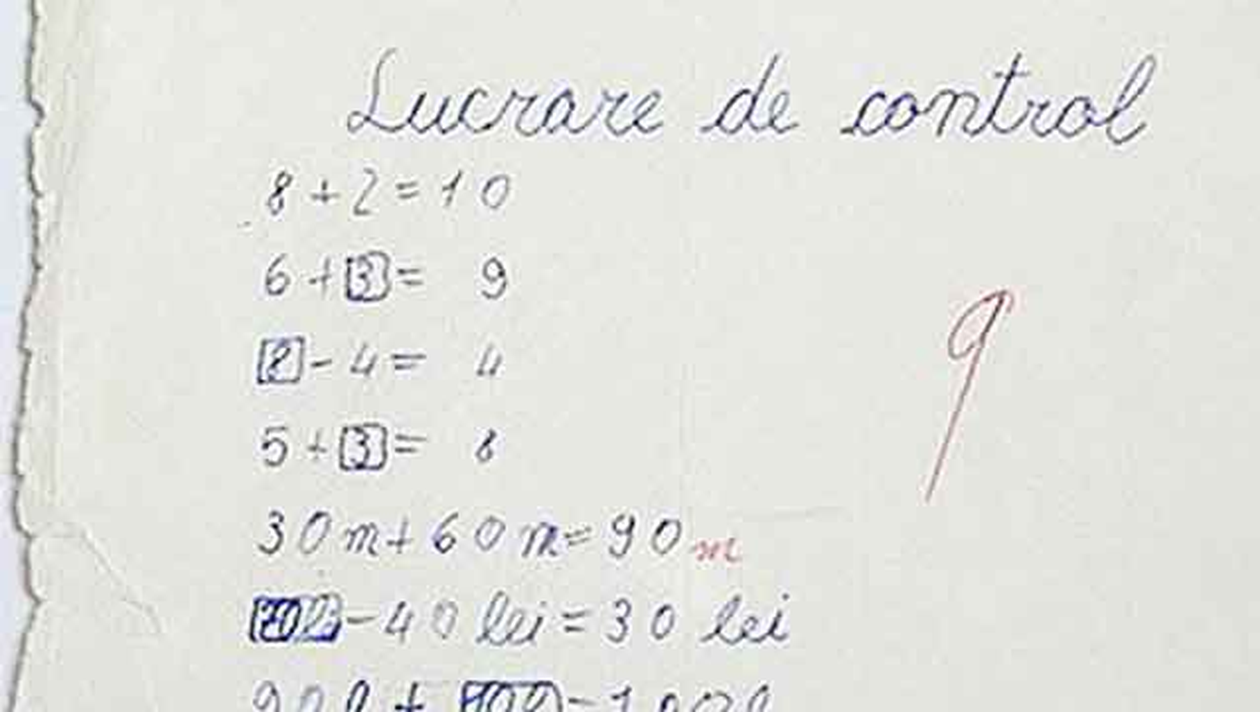 Lucrare de control
8 + 2 = 10
6 + 3 = 9
8 - 4 = 4
9
5 + 3 = 8
30 m + 60 m = 90 m
70 l - 40 lei = 30 lei
90 l + 10 l = 100 l